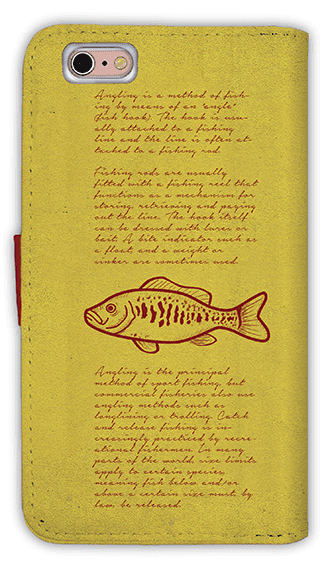 Angling is a method of fish-
ing by means of an "angle"
(fish hook). The hook is usu-
ally attached to a fishing
line and the line is often at-
tached to a fishing rod.
Fishing rods are usually
fitted with a fishing reel that
functions as a mechanism for
storing, retrieving and paying
out the line. The hook itself
can be dressed with lures or
bait. A bite indicator such as
a float and a weight or
sinker are sometimes used.
Angling is the principal
method of sport fishing, but
commercial fisheries also use
angling methods such as
longlining or trolling. Catch
and release fishing is in-
creasingly practiced by recre-
ational fishermen. In many
parts of the world, size limits
apply to certain species,
meaning fish below and/or
above a certain size must, by
law, be released.